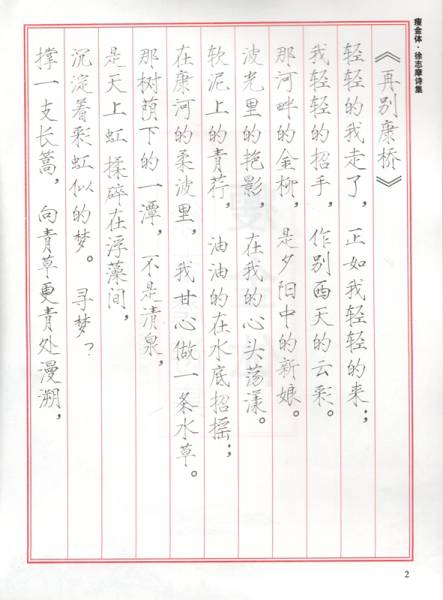 瘦金体·徐志摩诗集
《再别康桥》
轻轻的我走了，正如我轻轻的来；
我轻轻的招手，作别西天的云彩。
那河畔的金柳，是夕阳中的新娘。
波光里的艳影，在我的心头荡漾。
软泥上的青荇，油油的在水底招摇；
在康河的柔波里，我甘心做一条水草。
那树荫下的一潭，不是清泉，
是天上虹揉碎在浮藻间，
沉淀着彩虹似的梦。寻梦？
撑一支长篙，向青草更青处漫溯，
2